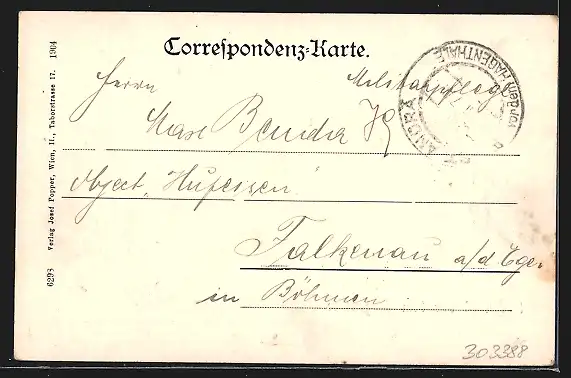 Correspondenz-Karte.
Herrn Militärpflege
Max Benda
Object „Hufeisen“
Falkenau a/d Eger
in Böhmen
ST. ANDRÄ HAGENTHALE
6293 Verlag Josef Popper, Wien, II., Taborstrasse 17. 1904
303388